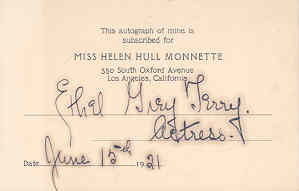 This autograph of mine is
subscribed for
MISS HELEN HULL MONNETTE
350 South Oxford Avenue
Los Angeles, California
Ethel Grey Terry.
Actress.
Date June 15th 1921